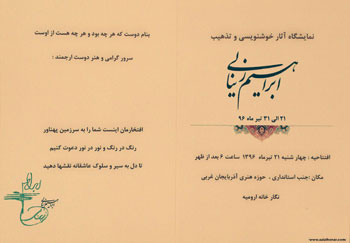 نمایشگاه آثار خوشنویسی و تذهیب
ابراهیم زینالی
۲۱ الی ۳۱ تیر ماه ۹۶
افتتاحیه : چهار شنبه ۲۱ تیرماه ۱۳۹۶ ساعت ۶ بعد از ظهر
مکان :جنب استانداری . حوزه هنری آذربایجان غربی
نگار خانه ارومیه
بنام دوست که هر چه بود و هر چه هست از اوست
سرور گرامی و هنر دوست ارجمند :
افتخارمان اینست شما را به سرزمین پهناور
رنگ در رنگ و نور در نور دعوت کنیم
تا دل به سیر و سلوک عاشقانه نقشها دهید
www.asiathonar.com